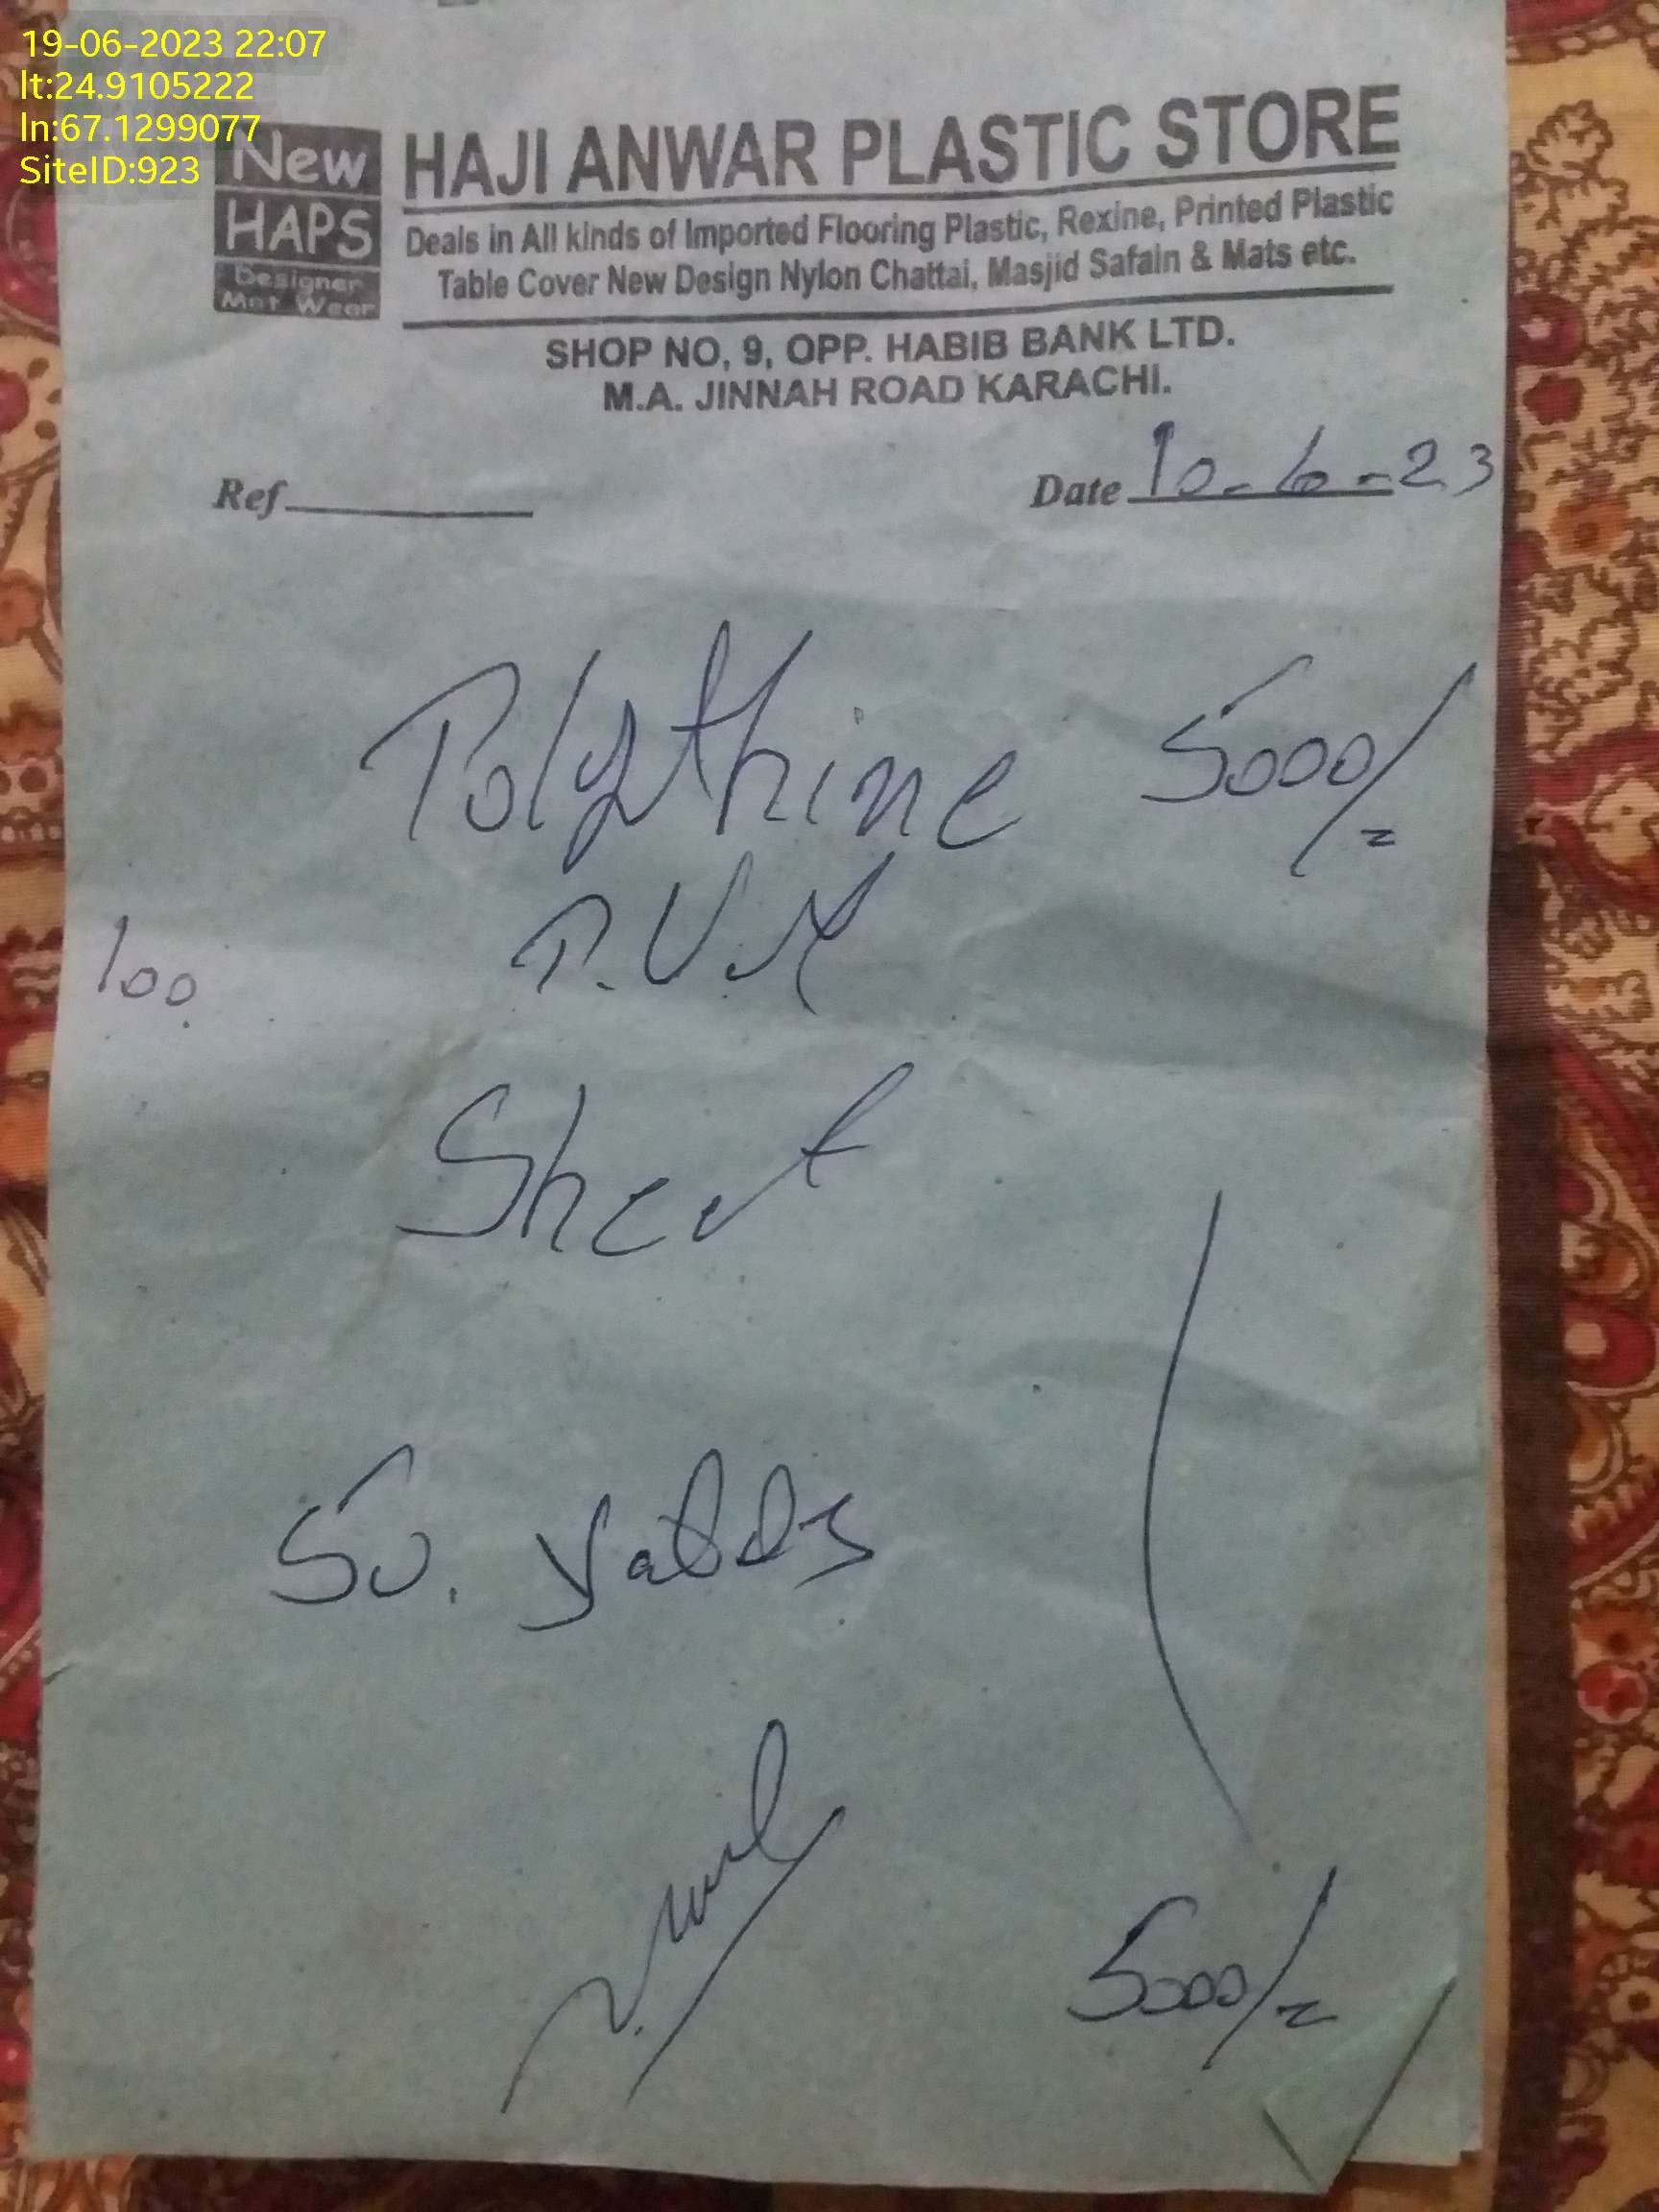 19-06-2023 22:07
lt:24.9105222
ln:67.1299077
SiteID:923
New
HAPS
Designer
Mat Wear
HAJI ANWAR PLASTIC STORE
Deals in All kinds of Imported Flooring Plastic, Rexine, Printed Plastic
Table Cover New Design Nylon Chattai, Masjid Safain & Mats etc.
SHOP NO, 9, OPP. HABIB BANK LTD.
M.A. JINNAH ROAD KARACHI.
Ref
Date 10-6-23
Polythine 5000/=
100
Sheet
50. yards
5000/=